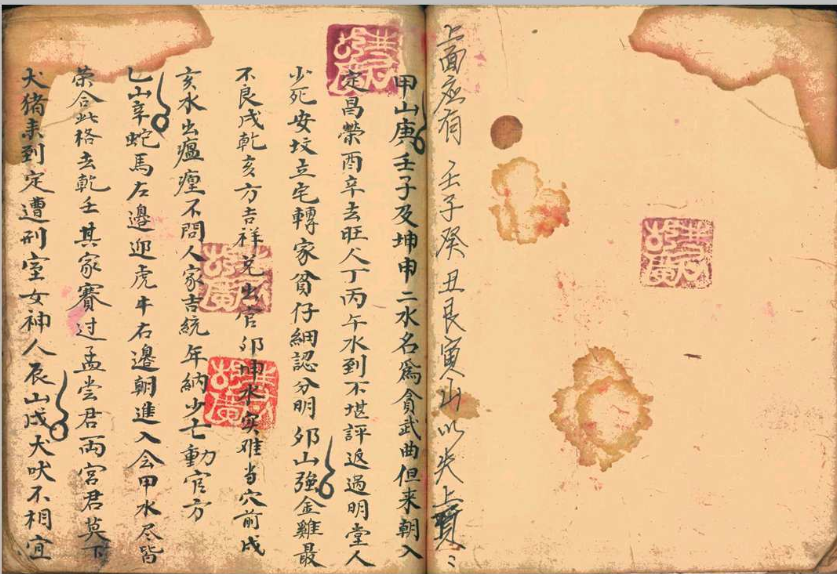 上面应有 壬子癸丑艮寅山以
甲山庚壬子及坤申二水名為貪武曲但来朝入
定昌榮酉辛去旺人丁丙午水到不堪評返過明堂人
少死安坟立宅轉家貧仔細認分明 夘山強金雞最
不良戌乾亥方吉祥兑出官夘坤水实难当穴前戌
亥水出瘟瘽不問人家吉統年納少亡動官方
乙山辛蛇馬左邊迎虎牛右邊朝進入会甲水尽皆
榮合此格去乾壬其家賽过孟尝君两宫君莫下
犬猪来到定遭刑室女神人辰山戌犬吠不相宜